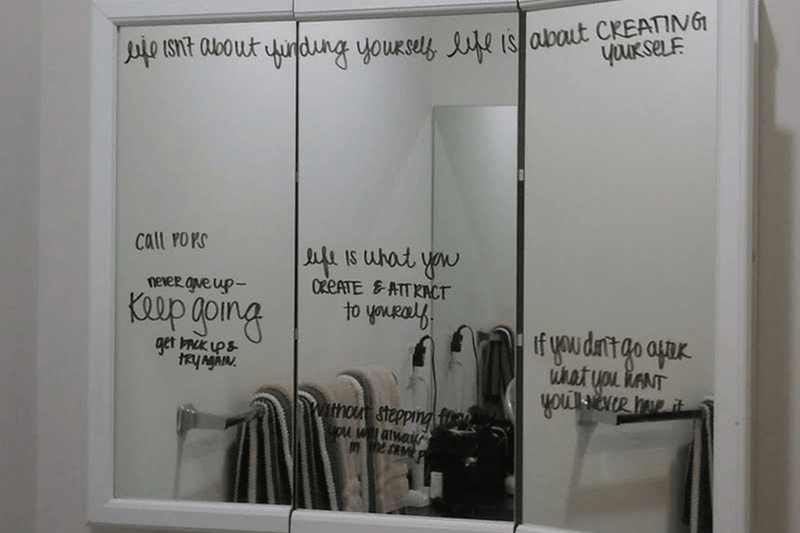 life isn't about finding yourself life is about CREATING
YOURSELF.
call POPS
never give up-
Keep going
get BACK up &
TRY AGAIN.
life is what you
CREATE & ATTRACT
to yourself.
Without stepping
you will always
in the same
if you don't go after
what you WANT
you'll NEVER have it